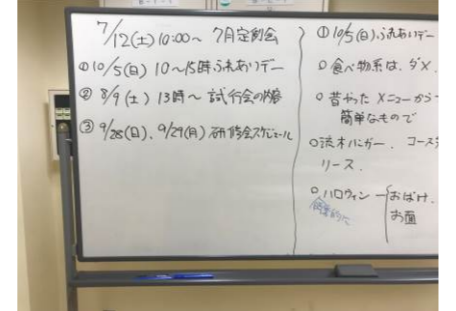 7/12(土) 10:00～ 7月定例会
①10/5(日) 10～15時 ふれあいデー
② 8/9(土) 13時～ 試行会の内容
③ 9/28(日)、9/29(月) 研修会スケジュール
①10/5(日) ふれあいデー
○ 食べ物系は、ダメ.
○ 昔やったメニューから
簡単なもので
○流木ハンガー. コース
リース.
○ ハロウィン ー おばけ.
お面